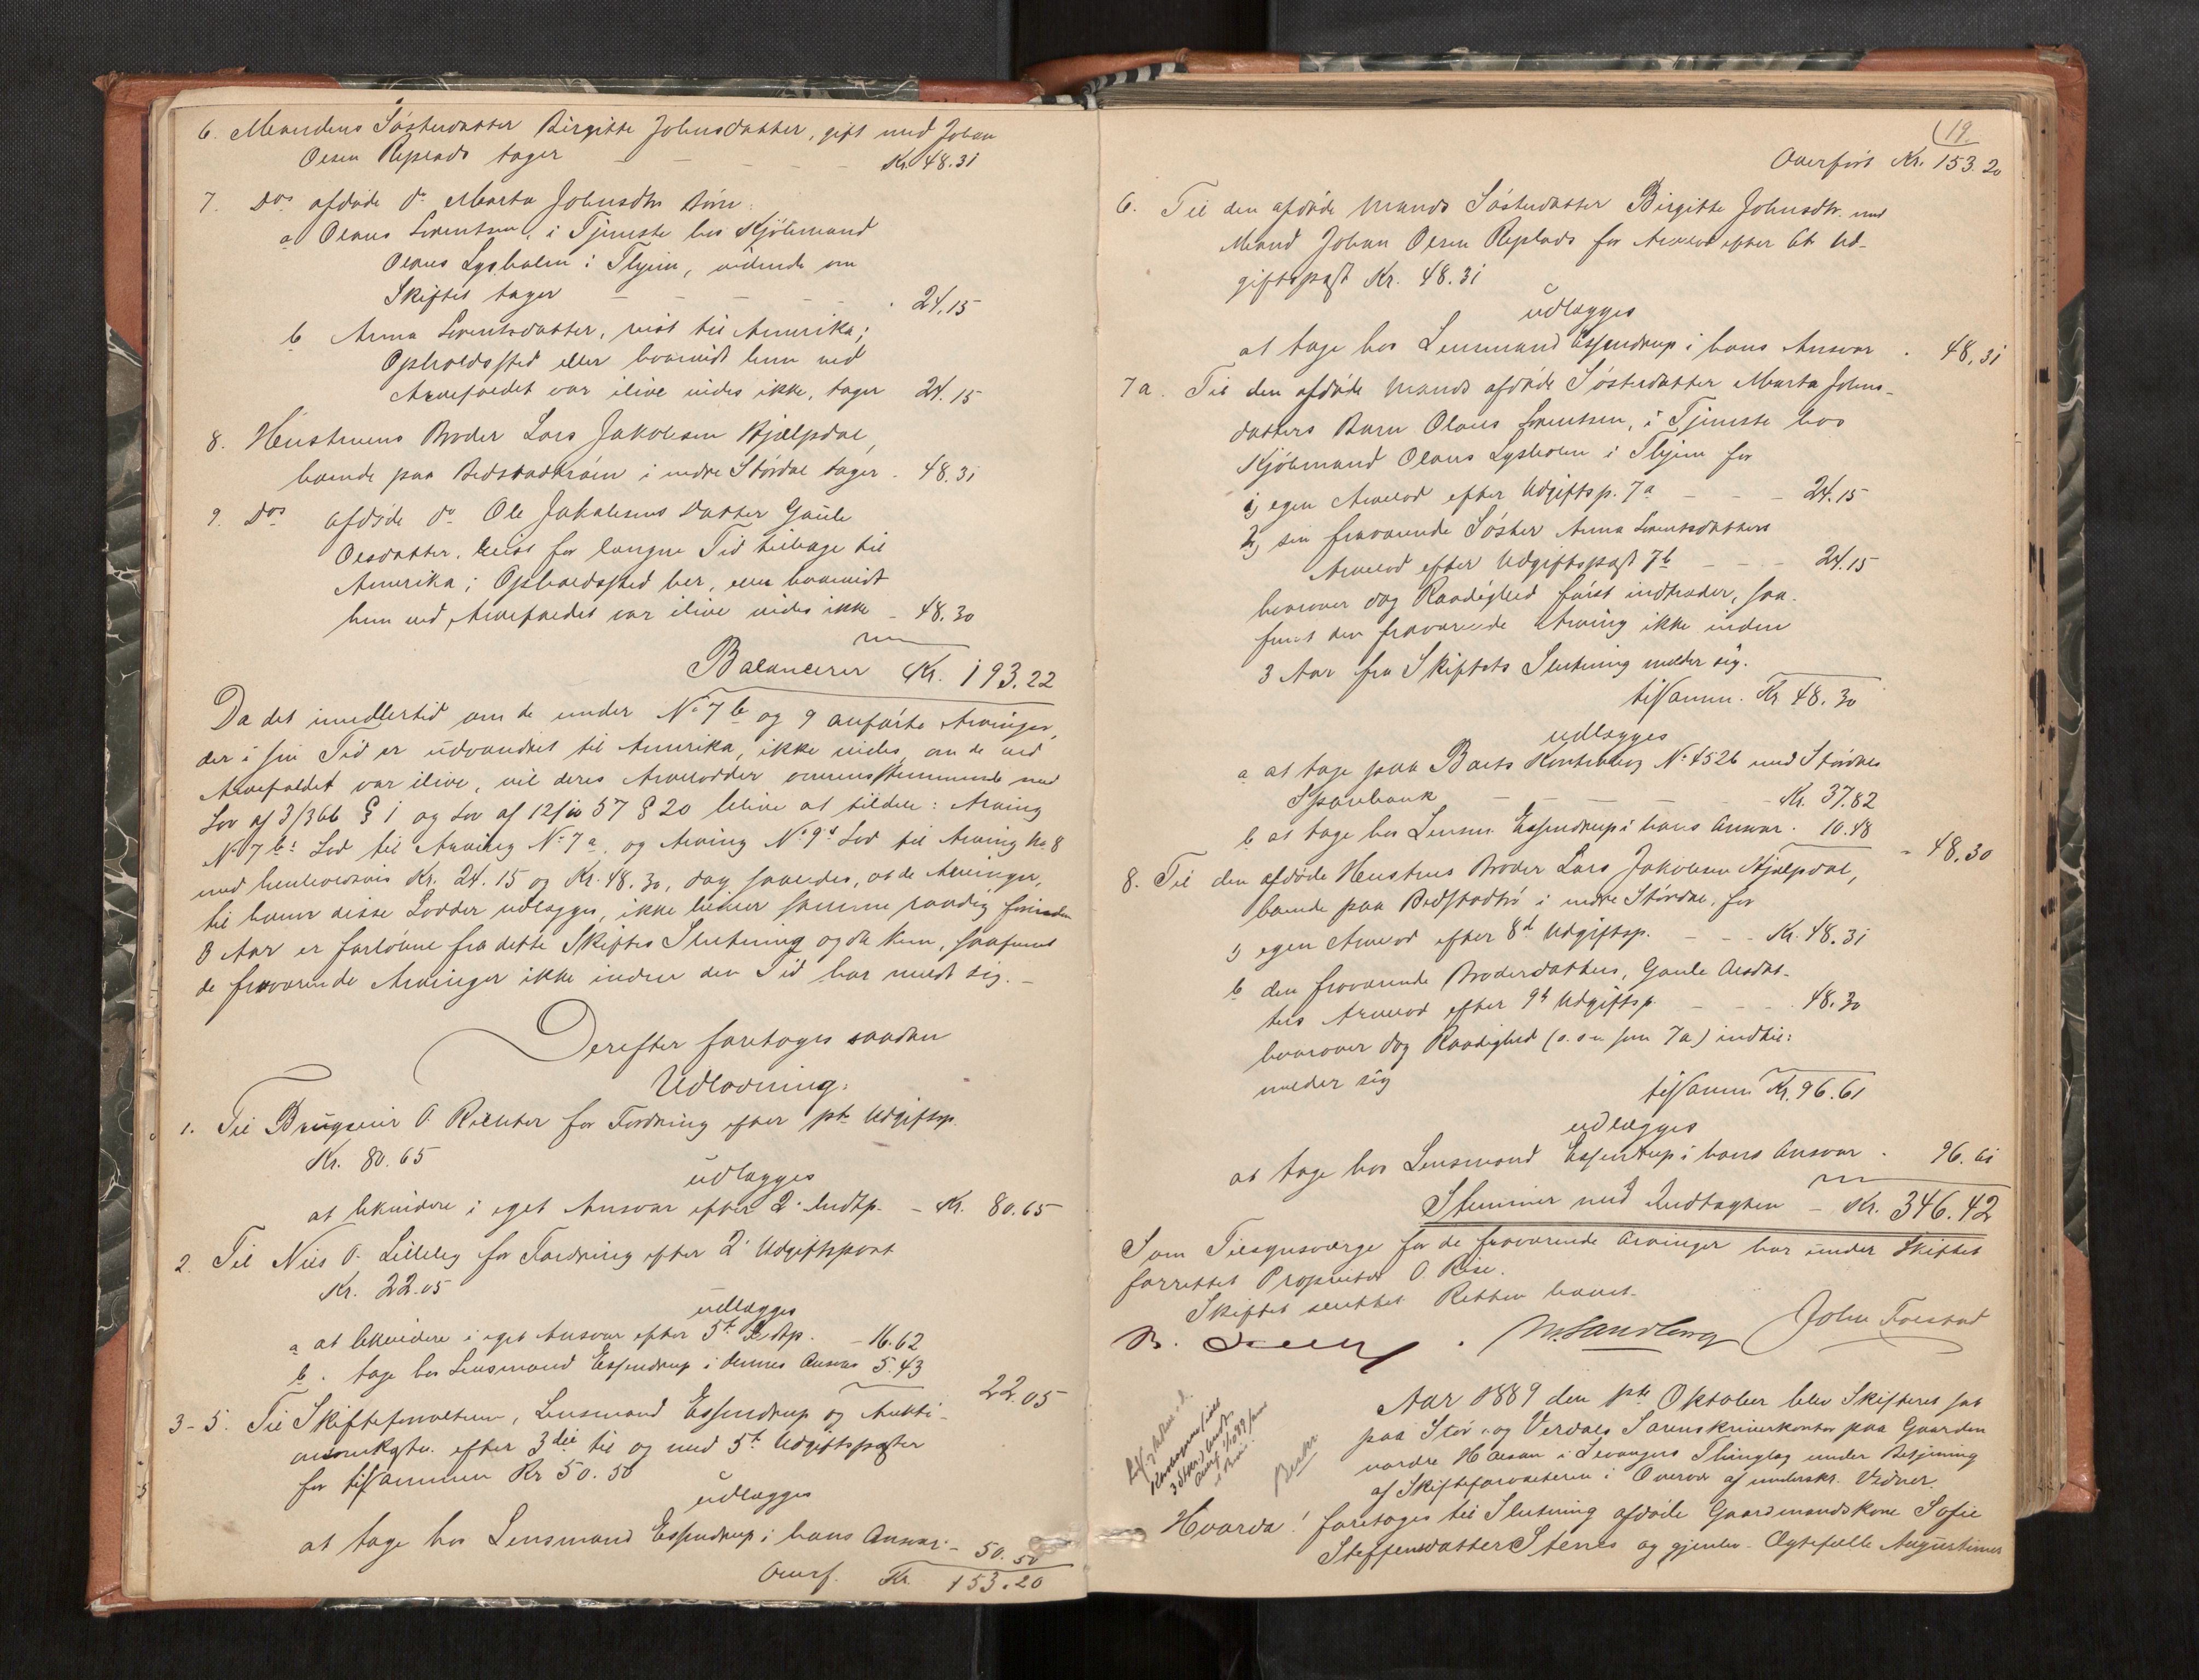 6. Mandens Søsterdatter Birgitte Johnsdatter, gift med Johan
Olsen Replads tager - - - - Kr. 48.31
7. Dos afdøde do Marta Johnsdtrs Børn:
a Olaus Lorentsen, i Tjeneste hos Kjøbmand
Olaus Lysholm i Thjem, vidende om
Skiftet tager - - - - - 24.15
b Anna Lorentsdatter, reist til Amerika;
Opholdssted eller hvorvidt hun ved
Arvefaldet var ilive vides ikke, tager 24.15
8. Hustruens Broder Lars Jakobsen Hjælpdal,
boende paa Bedstadtrøen i nedre Stördal tager - 48.31
9. Dos afdøde do Ole Jakobsens Datter Gaule
Olsdatter, reist for længere Tid tilbage til
Amerika; Opholdssted her, eller hvorvidt
hun ved Arvefaldet var ilive vides ikke - 48.30
Balancerer Kr. 193.22
Da det imidlertid om de under No 7 b og 9 anførte Arvinger,
der i sin Tid er udvandret til Amerika, ikke vides, om de ved
Arvefaldet var ilive, vil deres Arvelodder overensstemmende med
Lov af 3/3 66 § 1 og Lov af 12/10 57 § 20 blive at tildele: Arving
No 7 bs Lod til Arving No 7 a, og Arving No 9s Lod til Arving No 8
med henholdsvis Kr. 24.15 og Kr. 48.30, dog saaledes, at de Arvinger,
til hvem disse Lodder udlægges, ikke bliver samme raadig forinden
3 Aar er forløbne fra dette Skiftes Slutning og da kun, saafremt
de fraværende Arvinger ikke inden den Tid har meldt sig. -
Derefter foretoges saadan
Udlodning:
1. Til Brugseier O. Richter for Fordring efter 1ste Udgiftsp.
Kr. 80.65
udlægges
at likvidere i eget Ansvar efter 2. Indtp. - Kr. 80.65
2. Til Nils O. Lilleby for Fordring efter 2 Udgiftspost
Kr. 22.05
udlægges
a at likvidere i eget Ansvar efter 5t Indtp. - 16.62
b. tage hos Lensmand Essendrup i dennes Ansvar 5.43
22.05
3-5. Til Skifteforvalteren, Lensmand Essendrup og Aukti-
onen efter 3die til og med 5t Udgiftsposter
for tilsammen Kr 50.50
udlægges
at tage hos Lensmand Essendrup i hans Ansvar - 50.50
Overf. Kr. 153.20
19.
Overført Kr. 153.20
6. Til den afdøde Mands Søsterdatter Birgitte Johnsdtr. med
Mand Johan Olsen Replads for Arvelod efter 6t Ud-
giftspost Kr. 48.31
udlægges
at tage hos Lensmand Essendrup i hans Ansvar . 48.31
7a. Til den afdøde Mands afdøde Søsterdatter Marta Johns-
datters Barn Olaus Lorentsen, i Tjeneste hos
Kjøbmand Olaus Lysholm i Thjem for
1, egen Arvelod efter Udgiftsp. 7a - - - 24.15
2, sin fraværende Søster Anna Lorentsdatters
Arvelod efter Udgiftspost 7b - - - 24.15
hvorover dog Raadighed først indtræder, saa-
fremt den fraværende Arving ikke inden
3 Aar fra Skiftets Slutning melder sig.
tilsamm. Kr 48.30
udlægges
a at tage paa Boets Kontrabog No 4526 med Stördalens
Sparebank - - - - - Kr. 37.82
b at tage hos Lensm. Essendrup i hans Ansvar . 10.48
- 48.30
8. Til den afdøde Hustrus Broder Lars Jakobsen Hjælpdal,
boende paa Bedstadtrø i nedre Stördal, for
1, egen Arvelod efter 8d Udgiftsp. - - - Kr. 48.31
b den fraværende Broderdatters, Gaule Olsdat-
ters Arvelod efter 9d Udgiftsp. - - - 48.30
hvorover dog Raadighed (o. s. v. som 7a) indtil:
melder sig
tilsamm Kr. 96.61
udlægges
at tage hos Lensmand Essendrup i hans Ansvar . 96.61
Stemmer med Indtægten - Kr. 346.42
Som Tilsynsværge for de fraværende Arvinger har under Skiftet
forrettet Proprietær O. Rise.
Skiftet sluttet Retten hævet.
M. Sandberg John Forstad
Aar 1889 den 1ste Oktober blev Skifteret sat
paa Stör- og Verdals Sorenskriverkontor paa Gaarden
nordre Haaan i Levangers Thinglag under Betjening
af Skifteforvalteren i Overvær af underskr. Vidner.
Hvorda! foretoges til Slutning afdøde Gaardmandskone Sofie
Steffensdatter Stenes og gjenlev. Ægtefælle Augustinus